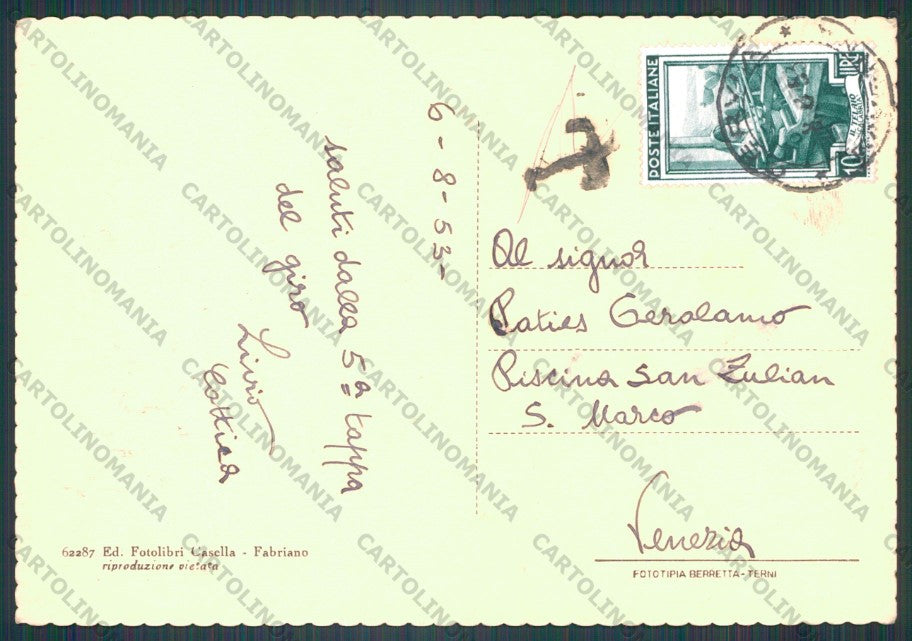 POSTE ITALIANE
10 LIRE
6-8-53-
saluti dalla 5ª tappa
del giro
Livio
Al signor
Gerolamo
Piscina San Zulian
S. Marco
Venezia
62287 Ed. Fotolibri Casella - Fabriano
riproduzione vietata
FOTOTIPIA BERRETTA - TERNI
CARTOLINOMANIA